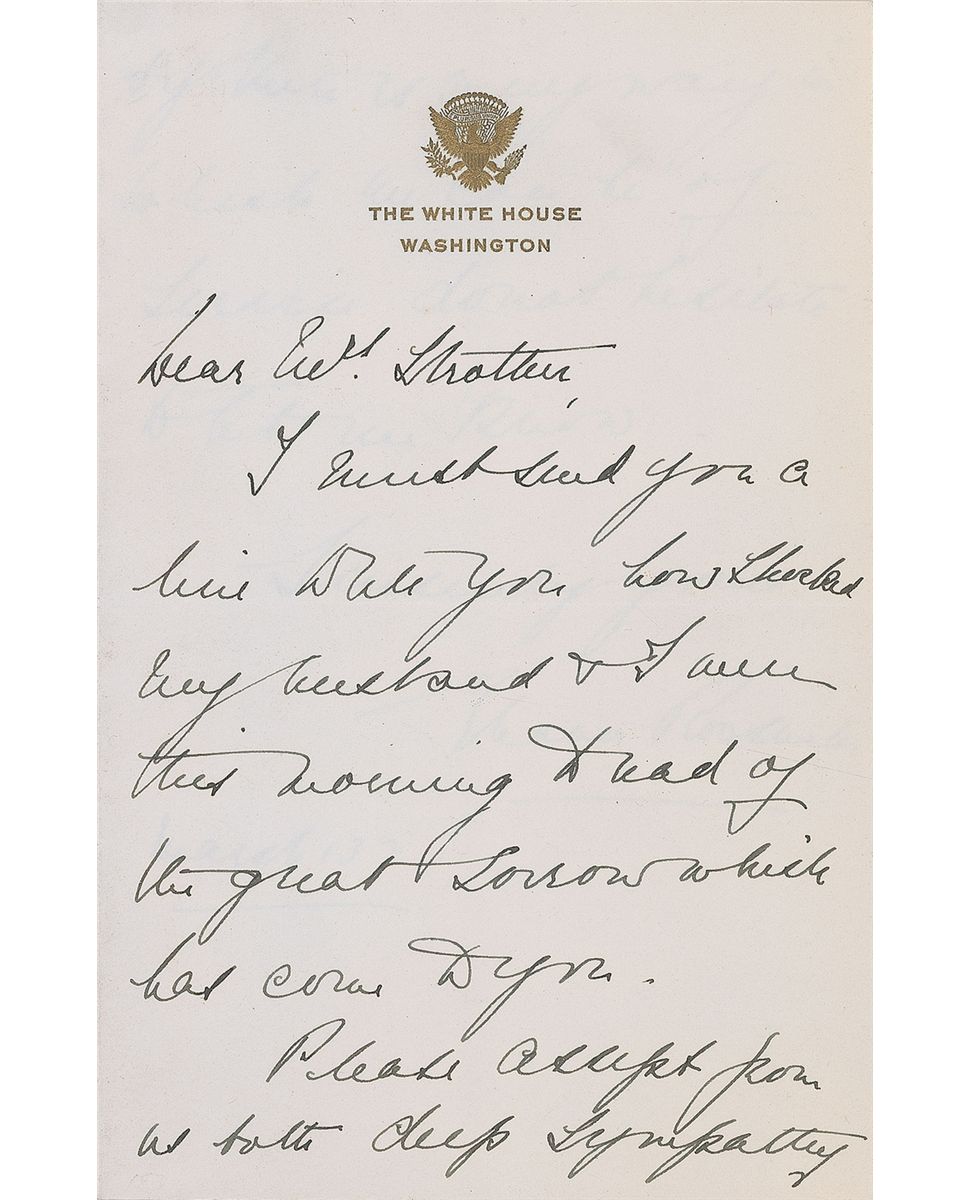 THE WHITE HOUSE
WASHINGTON
Dear Mrs. Strother,
I must send you a
line to tell you how shocked
my husband & I were
this morning to read of
the great sorrow which
has come to you.
Please accept from
us both deep sympathy